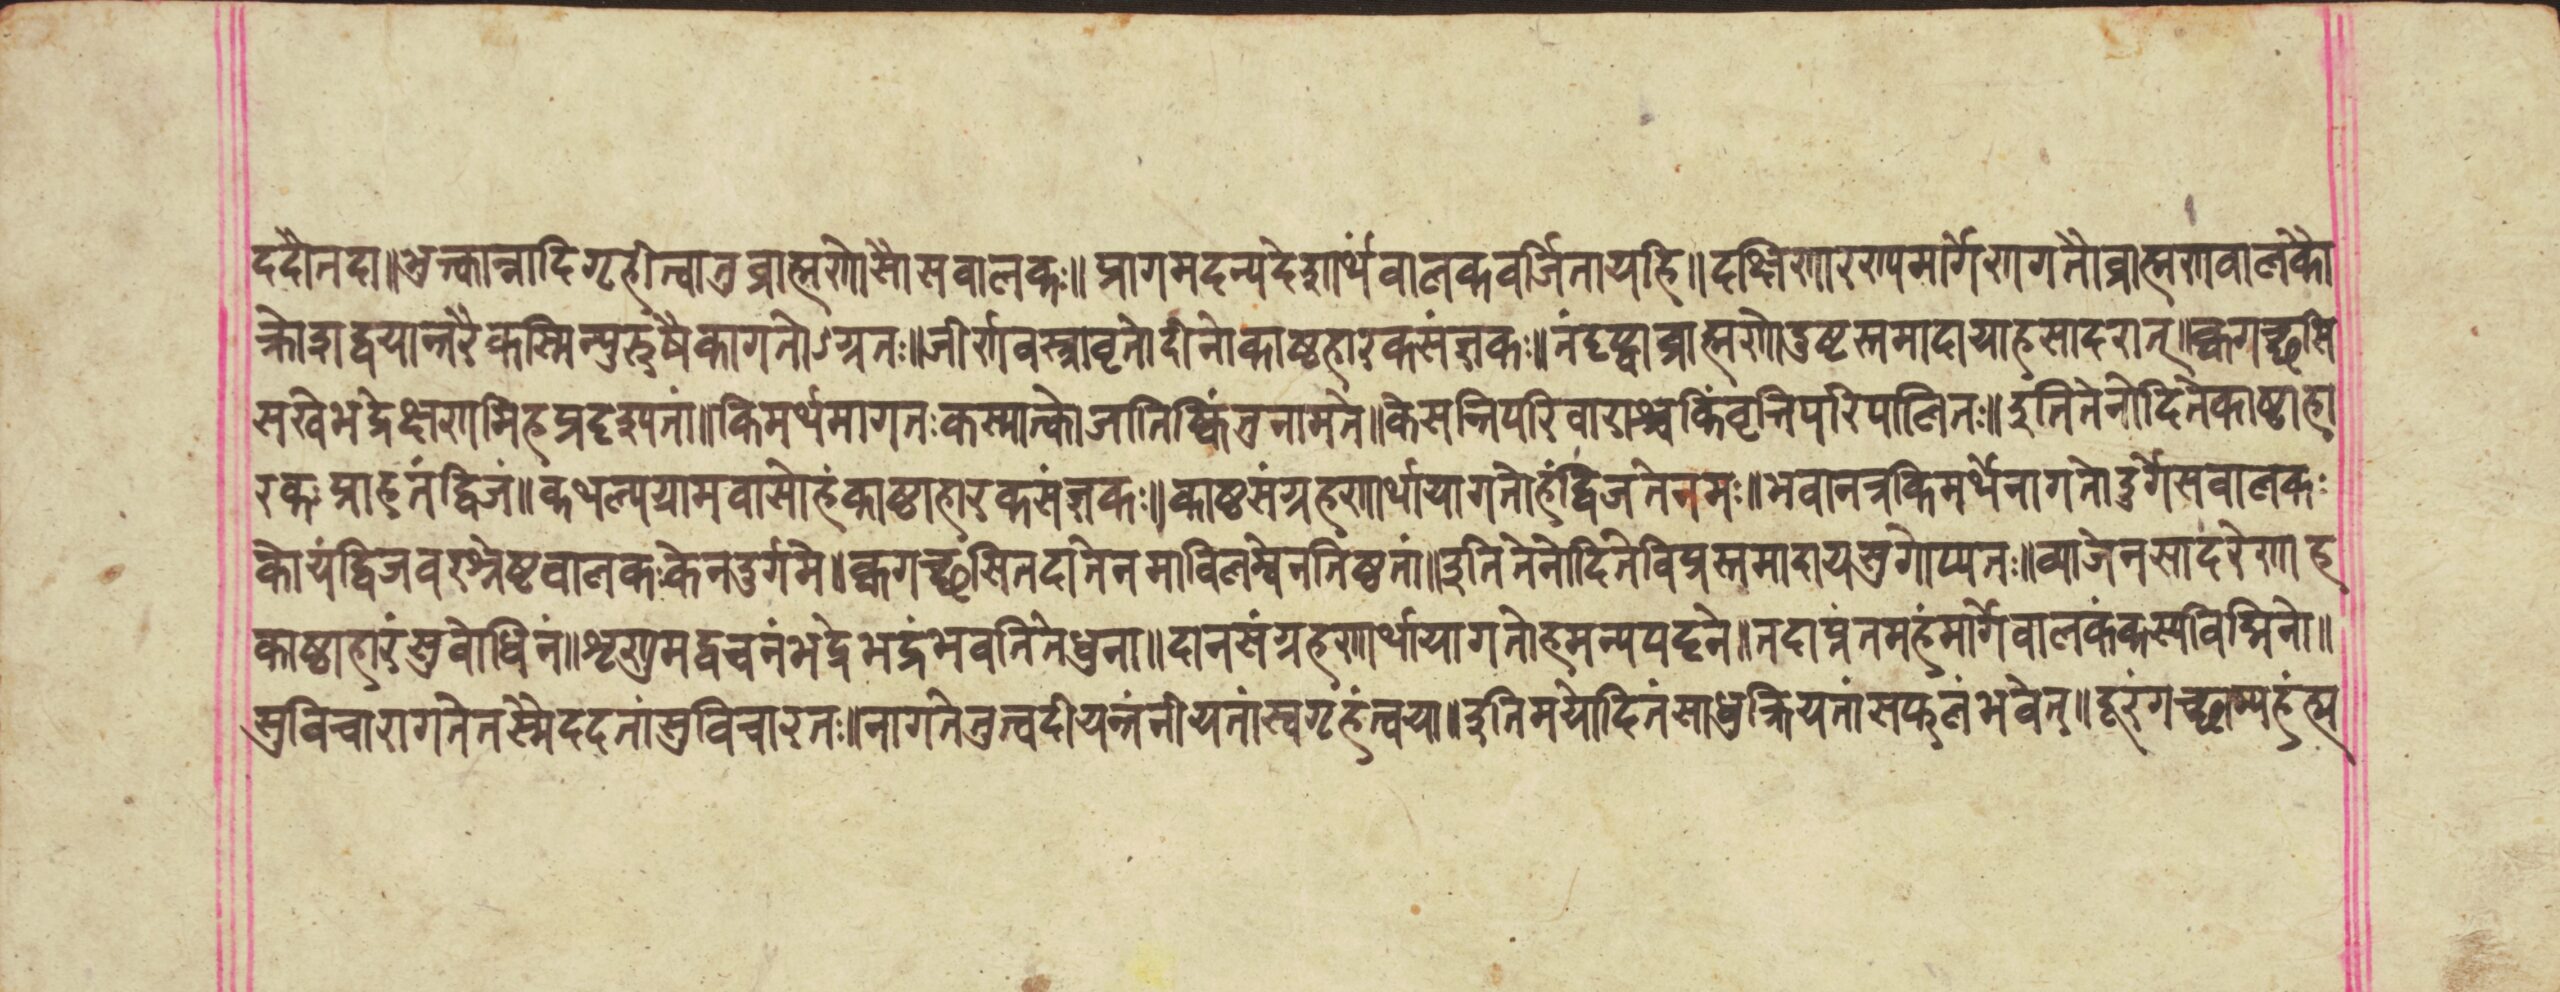 ददौतदा॥भुक्त्वान्नादिगृहीत्वातुब्राह्मणोसौसवालकः॥प्रागमदन्यदेशार्थंवालकवर्जितायहि॥दक्षिणारण्यमार्गेणागतौब्राह्मणवालकौ
क्रोशद्वयान्तरैकस्मिन्पुरुषैकागतोऽग्रतः॥जीर्णवस्त्रावृतोदीनोकाष्ठहारकसंज्ञकः॥तंदृष्ट्वाब्राह्मणोदुष्टस्तमादायाहसादरात्॥क्वगच्छसि
सखेभद्रेक्षणमिहप्रदृश्यतां॥किमर्थमागतःकस्मात्कोजातिष्किंतुनामते॥केसन्तिपरिवाराश्चकिंवृत्तिपरिपालितः॥इतितेनोदितेकाष्ठाहा
रकःप्राहतंद्विजं॥कथल्यग्रामवासोहंकाष्ठाहारकसंज्ञकः॥काष्ठसंग्रहणार्थायागतोहंद्विजतेनमः॥भवानत्रकिमर्थेनागतोदुर्गेसवालकः
कोयंद्विजवरश्रेष्टवालकःकेनदुर्गमे॥क्वगच्छसितदातेनमाविलम्वेनतिष्ठतां॥इतितेनोदितेविप्रस्तमादायसुगोप्यतः॥व्याजेनसादरेणाह
काष्ठाहारंसुवोधितं॥शृणुमद्वचनंभद्रेभद्रंभवतितेधुना॥दानसंग्रहणार्थायागतोहमन्यपट्टने॥तदाप्नंतमहंमार्गेवालकंकस्यविद्मिनो॥
सुविचारागतेतस्मैददतांसुविचारतः॥नागतेतुत्वदीयन्तंनीयतांस्वगृहंत्वया॥इतिमयोदितंसाधुक्रियतांसफलंभवेत्॥दूरंगच्छाम्यहंत्म